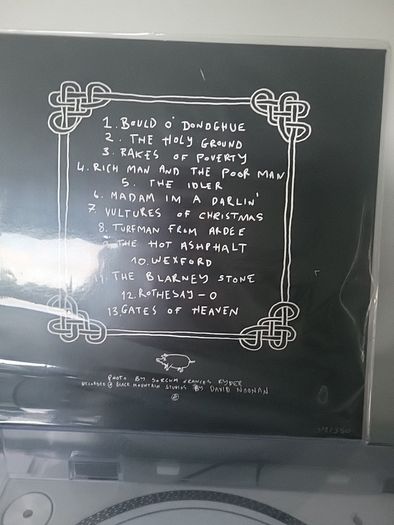 1. BOULD O' DONOGHUE
2. THE HOLY GROUND
3. RAKES OF POVERTY
4. RICH MAN AND THE POOR MAN
5. THE IDLER
6. MADAM IM A DARLIN'
7. VULTURES OF CHRISTMAS
8. TURFMAN FROM ARDEE
9. THE HOT ASHPHALT
10. WEXFORD
11. THE BLARNEY STONE
12. ROTHESAY - O
13. GATES OF HEAVEN
PHOTO BY SORCHA FRANCES RYDER
RECORDED @ BLACK MOUNTAIN STUDIOS BY DAVID NOONAN